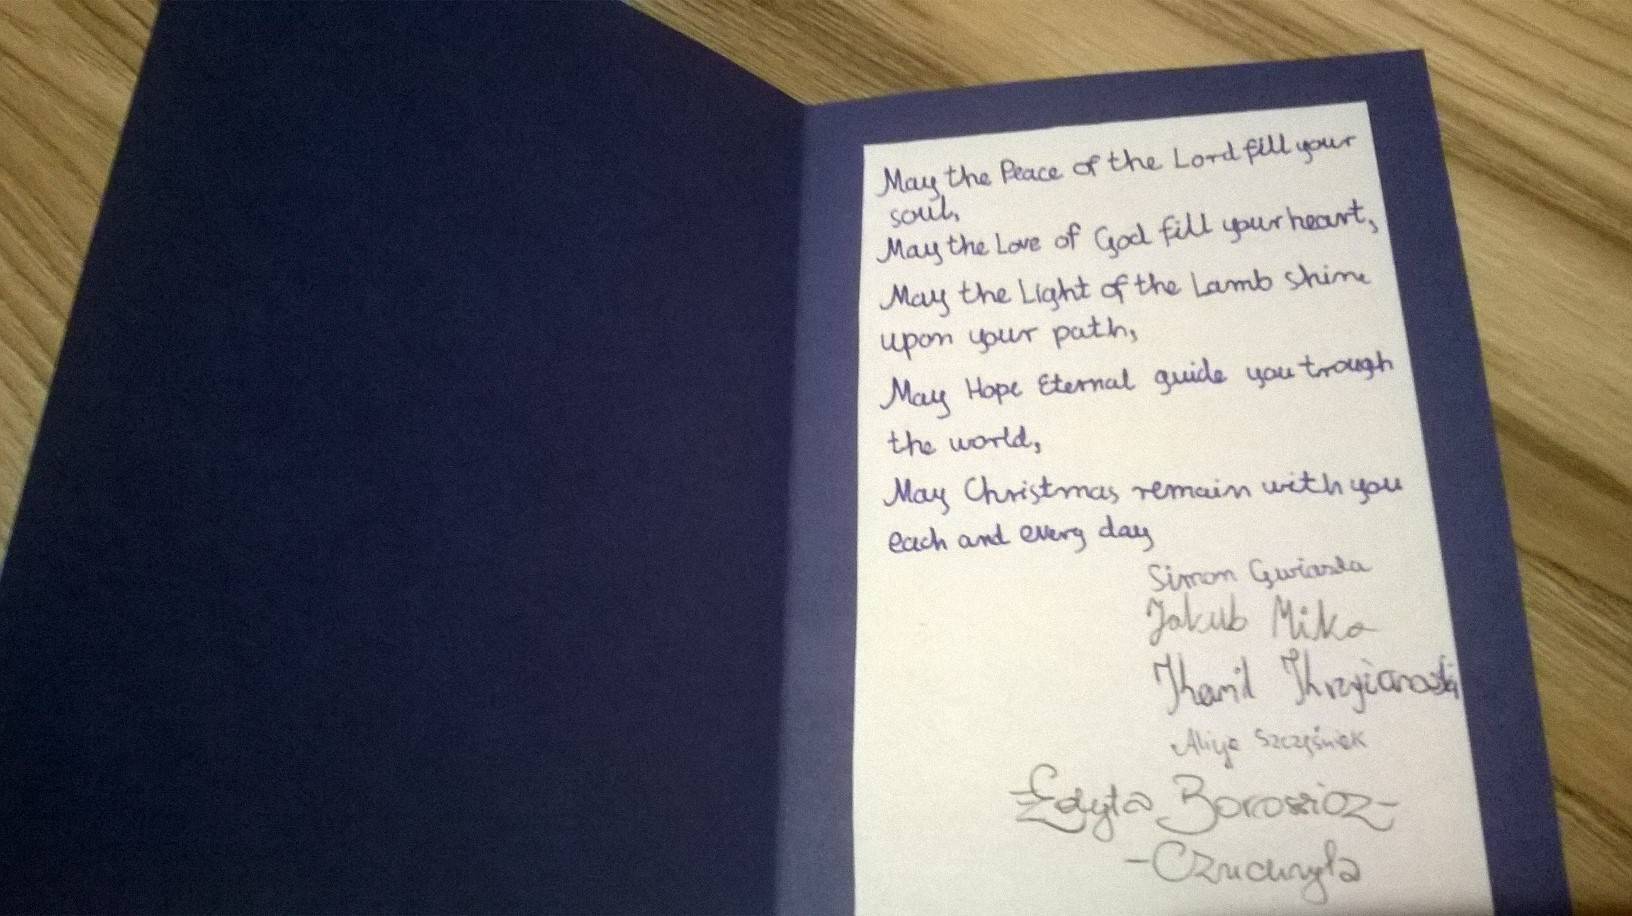 May the Peace of the Lord fill your
soul,
May the Love of God fill your heart,
May the Light of the Lamb shine
upon your path,
May Hope Eternal guide you trough
the world,
May Christmas remain with you
each and every day
Simon Gwiazda
Jakub Mika
Szczęśniak
Edyta